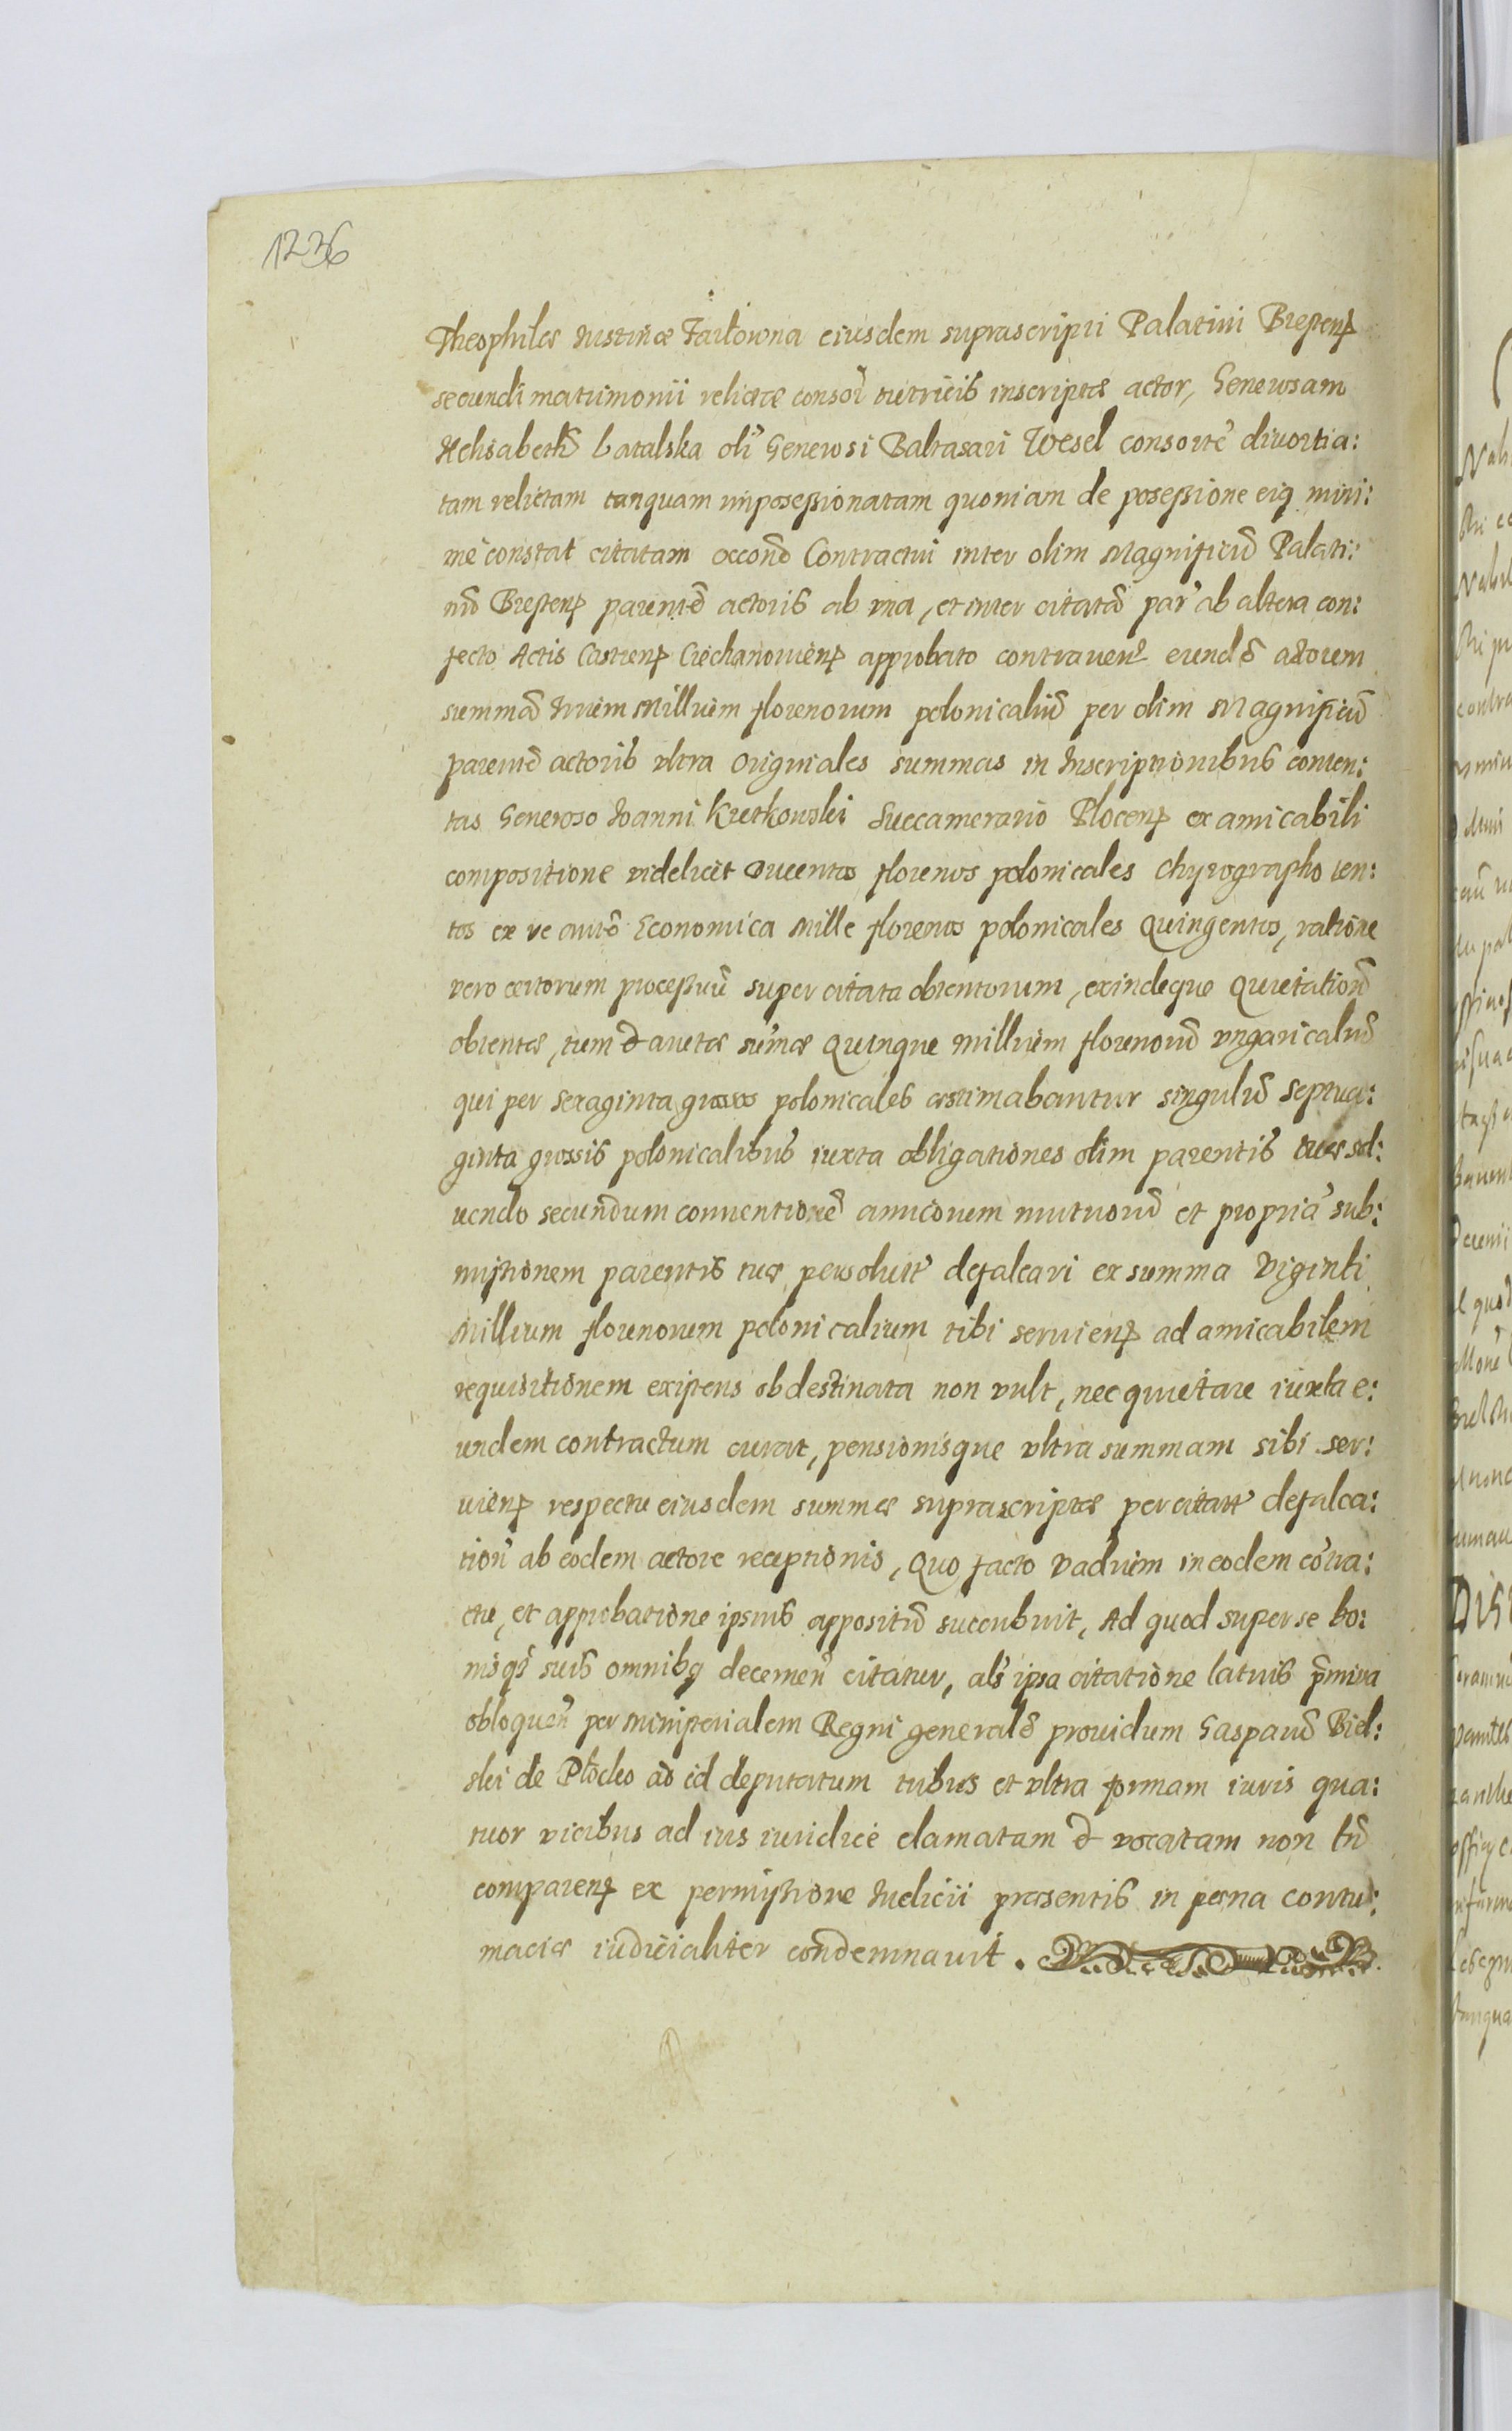 1236
Theophilæ Iustinæ Tarłowna eiusdem suprascripti Palatini Brestens
secundi matrimonii relictæ consor tutricis inscriptæ actor, Generosam
Helisabeth Latalska oli Generosi Baltasari Wesel consorte divortia:
tam relictam tanquam imposessionatam quoniam de posessione eiq mini:
me constat citatam occono Contractui inter olim Magnificu Palati:
nu Brestens parente actoris ab vna, et inter citata par ab altera con:
fecto Actis Castrens Ciechanoviens approbato contraven eunde actorem
summa trium Millium florenorum polonicaliu per olim Magnificu
parente actoris vltra originales summas in Inscriptionibus conten:
tas Generoso Ioanni Kretkowski Succamerario Plocens ex amicabili
compositione videlicet Ducentos florenos polonicales chyrographo ten:
tos ex re auto Economica Mille florenos polonicales Quingentos, ratione
vero certorum processuu super citata obtentorum, exindeque Quietation
obtentæ, tum et auctæ sumæ Quinque millium florenoru vngaricaliu
qui per sexaginta grossos polonicales æstimabantur singulu septua:
ginta grossis polonicalibus iuxta obligationes olim parentis tuæ sol:
uendo secundum conventione amicorum mutuoru et propria sub:
missionem parentis tuæ persoluit defalcari ex summa Viginti
Millium florenorum polonicalium tibi seruiens ad amicabilem
requisitionem existens obdestinata non vult, nec quietare iuxta e:
undem contractum curat, pensionisque vltra summam sibi ser:
uiens respectu eiusdem summæ suprascriptæ per citatt defalca:
tion ab eodem actore receptionis, Quo facto Vadium in eodem co'tra:
ctu, et approbatione ipsius appositu succubuit, Ad quod super se bo:
nisq suis omnibq decernen citatur, als ipsa citatione latius pmissa
obloquen per Ministerialem Regni generale providum Gasparu Biel:
ski de Płocko ad id deputatum tribus et vltra formam iuris qua:
tuor vicibus ad ius iuridice clamatam et vocatam non tn
comparens ex permissione Iudicii præsentis in pœna contu:
maciæ iudicialiter condemnavit.